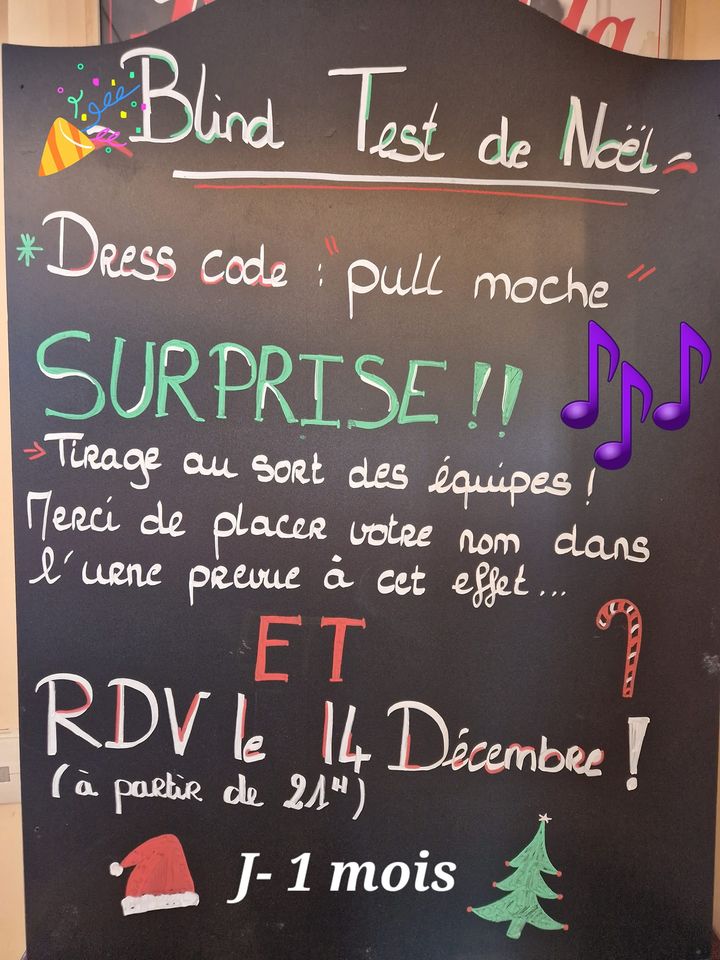 Blind Test de Noël
* Dress code : "pull moche"
SURPRISE !!
→ Tirage au sort des équipes !
Merci de placer votre nom dans
l'urne prevue à cet effet...
ET
RDV le 14 Décembre !
(à partir de 21H)
J- 1 mois